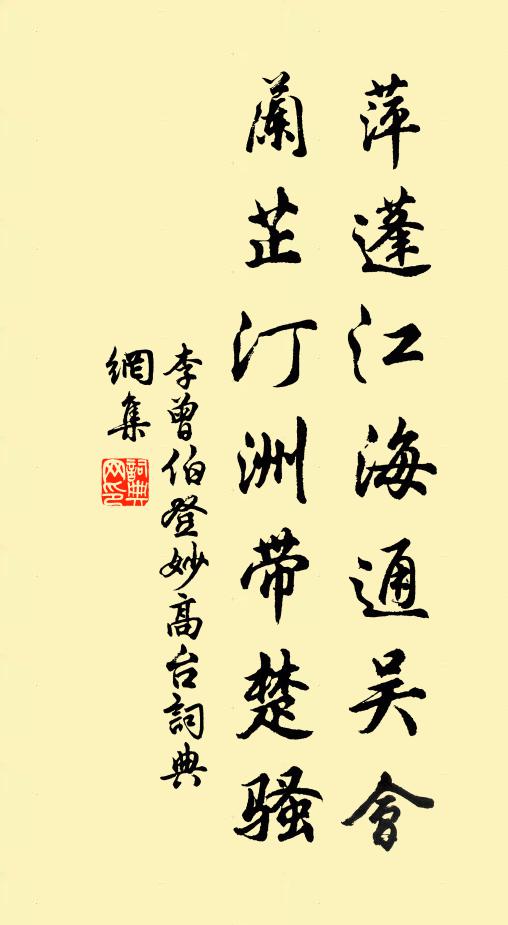 萍蓬江海通吴會
蘭芷汀洲带楚骚
李曾伯登妙高台詞典
網集
詞典網印